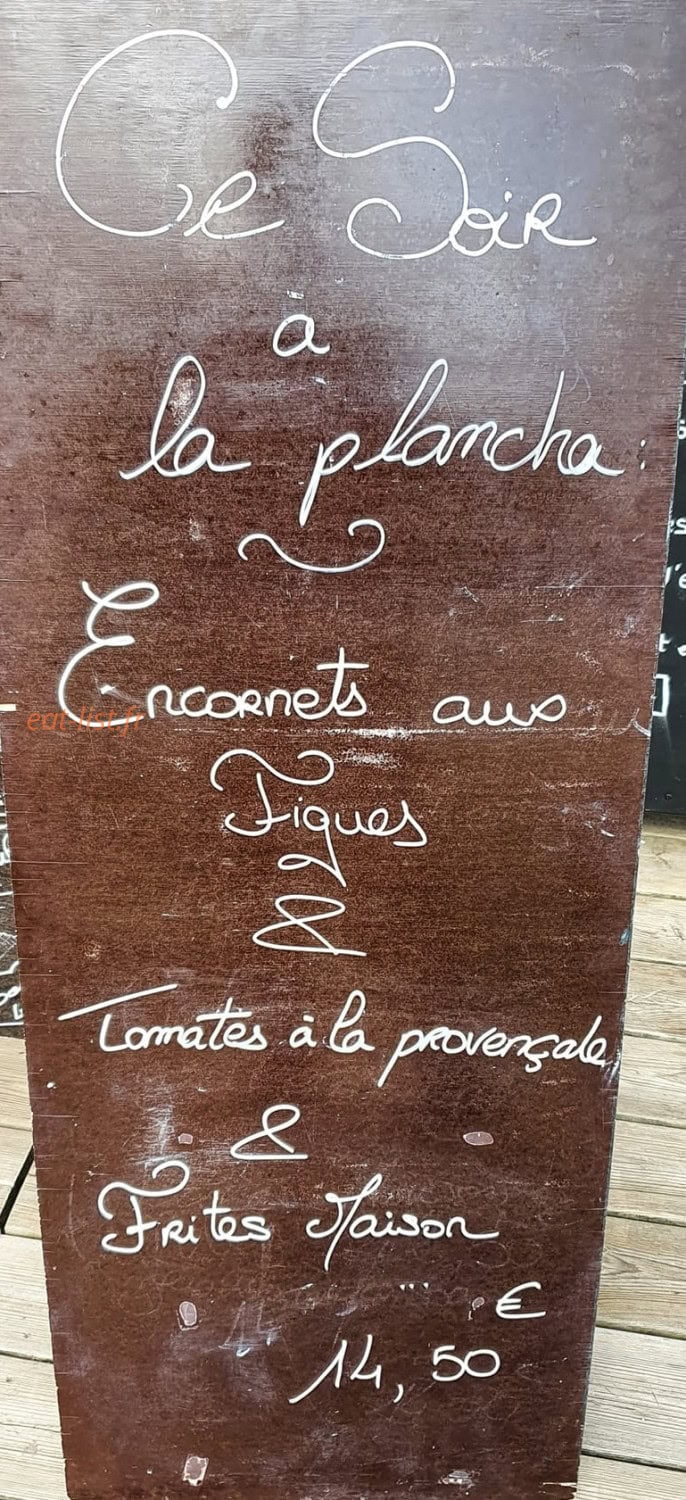 Ce Soir
à
la plancha :
Encornets aux
Figues
&
Tomates à la provençale
&
Frites Maison
... €
14,50
eat-list.fr